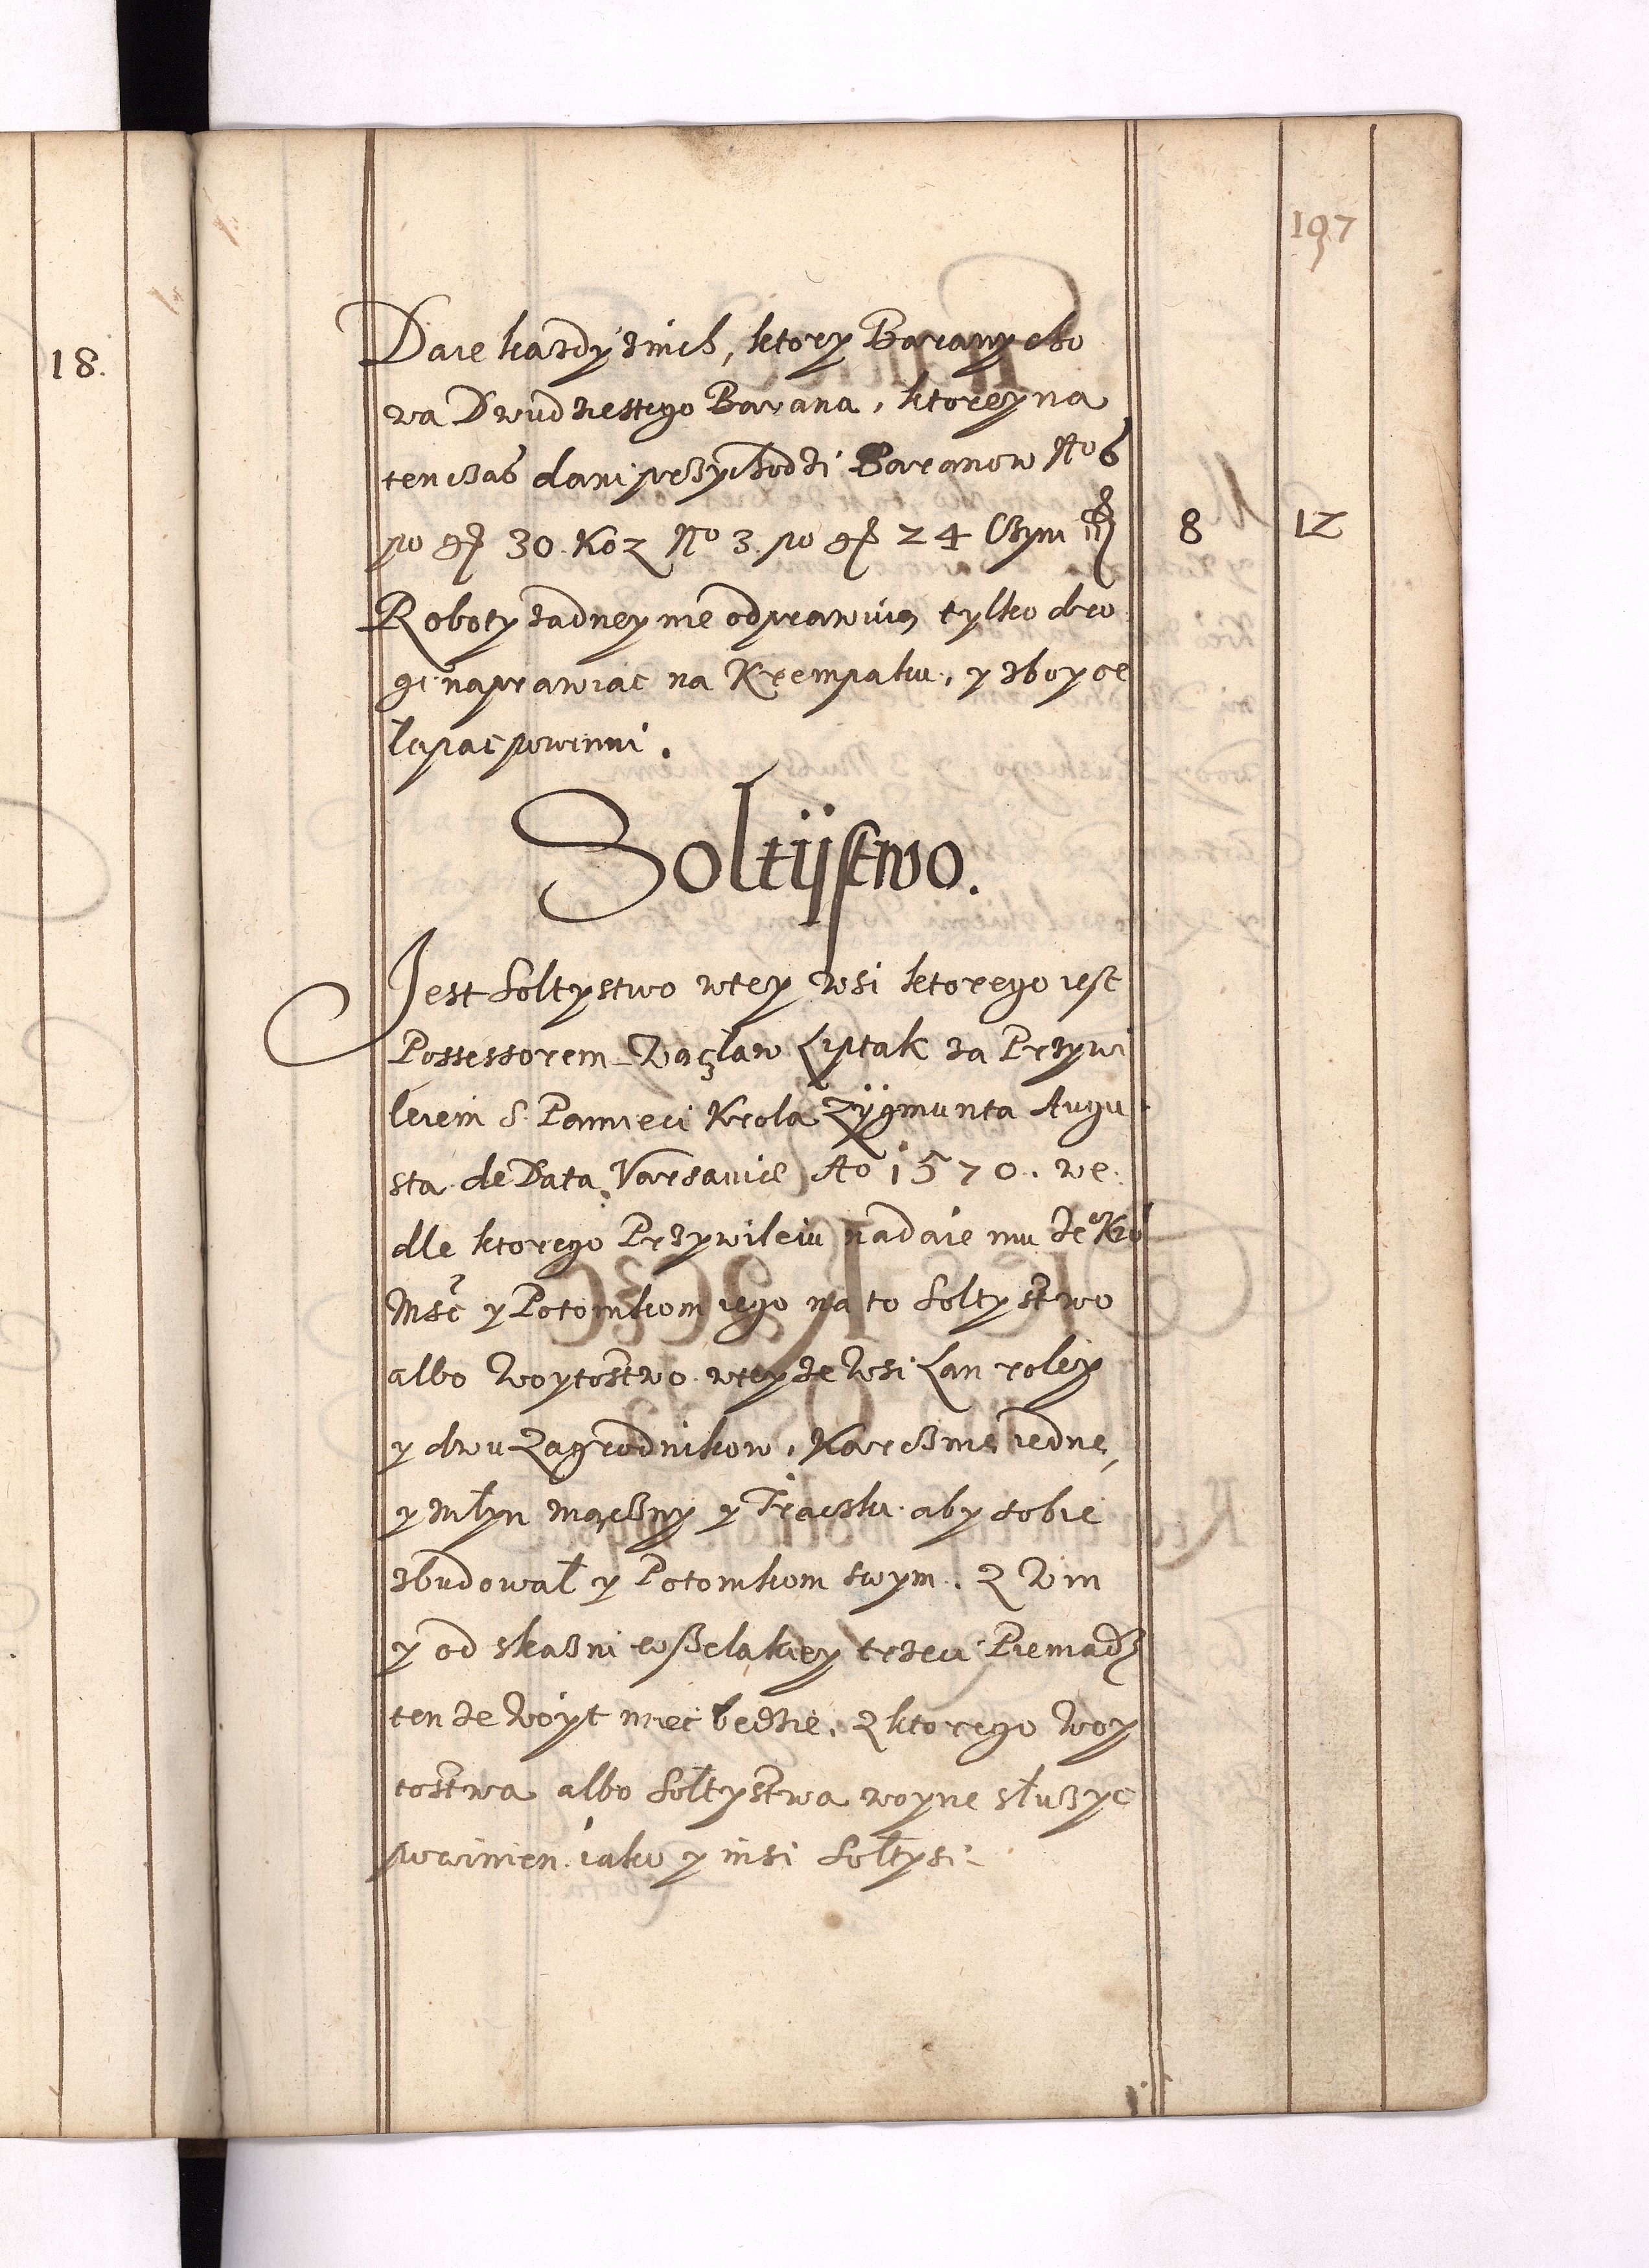 18.
197
Daie kazdy znich, ktory Barany cho
wa Dwudziestego Barana, ktorey na
tenczas dani przychodzi Baranow No 6
po gr 30. Koz No 3. po gr 24 Czyni
8 12
Roboty zadney nie odprawuią tylko dro
gi naprawiac na Krempaku, y zboyce
łapac powinni.
Soltijstwo.
Jest Soltystwo wtey wsi ktorego iest
Possessorem Wacław Liptak za Przywi
leiem S. Pamieci Krola Zÿgmunta Augu
sta de Data Varsaviæ Ao 1570. we
dle ktorego Przywileiu nadaie mu Je° Kro
Mść y Potomkom iego na to Soltystwo
albo Woytostwo wteyze Wsi Lan roley
y dwu Zagrodnikow, Karczme iedne,
y Młyn mączny y Traczku aby sobie
zbudował y Potomkom swym. Z Win
y od skazni wszelakiey trzeci Pieniadz
tenze Woyt miec bedzie. Zktorego Woy
tostwa albo Sołtystwa woyne słuzyc
powinien iako y insi Sołtysi.